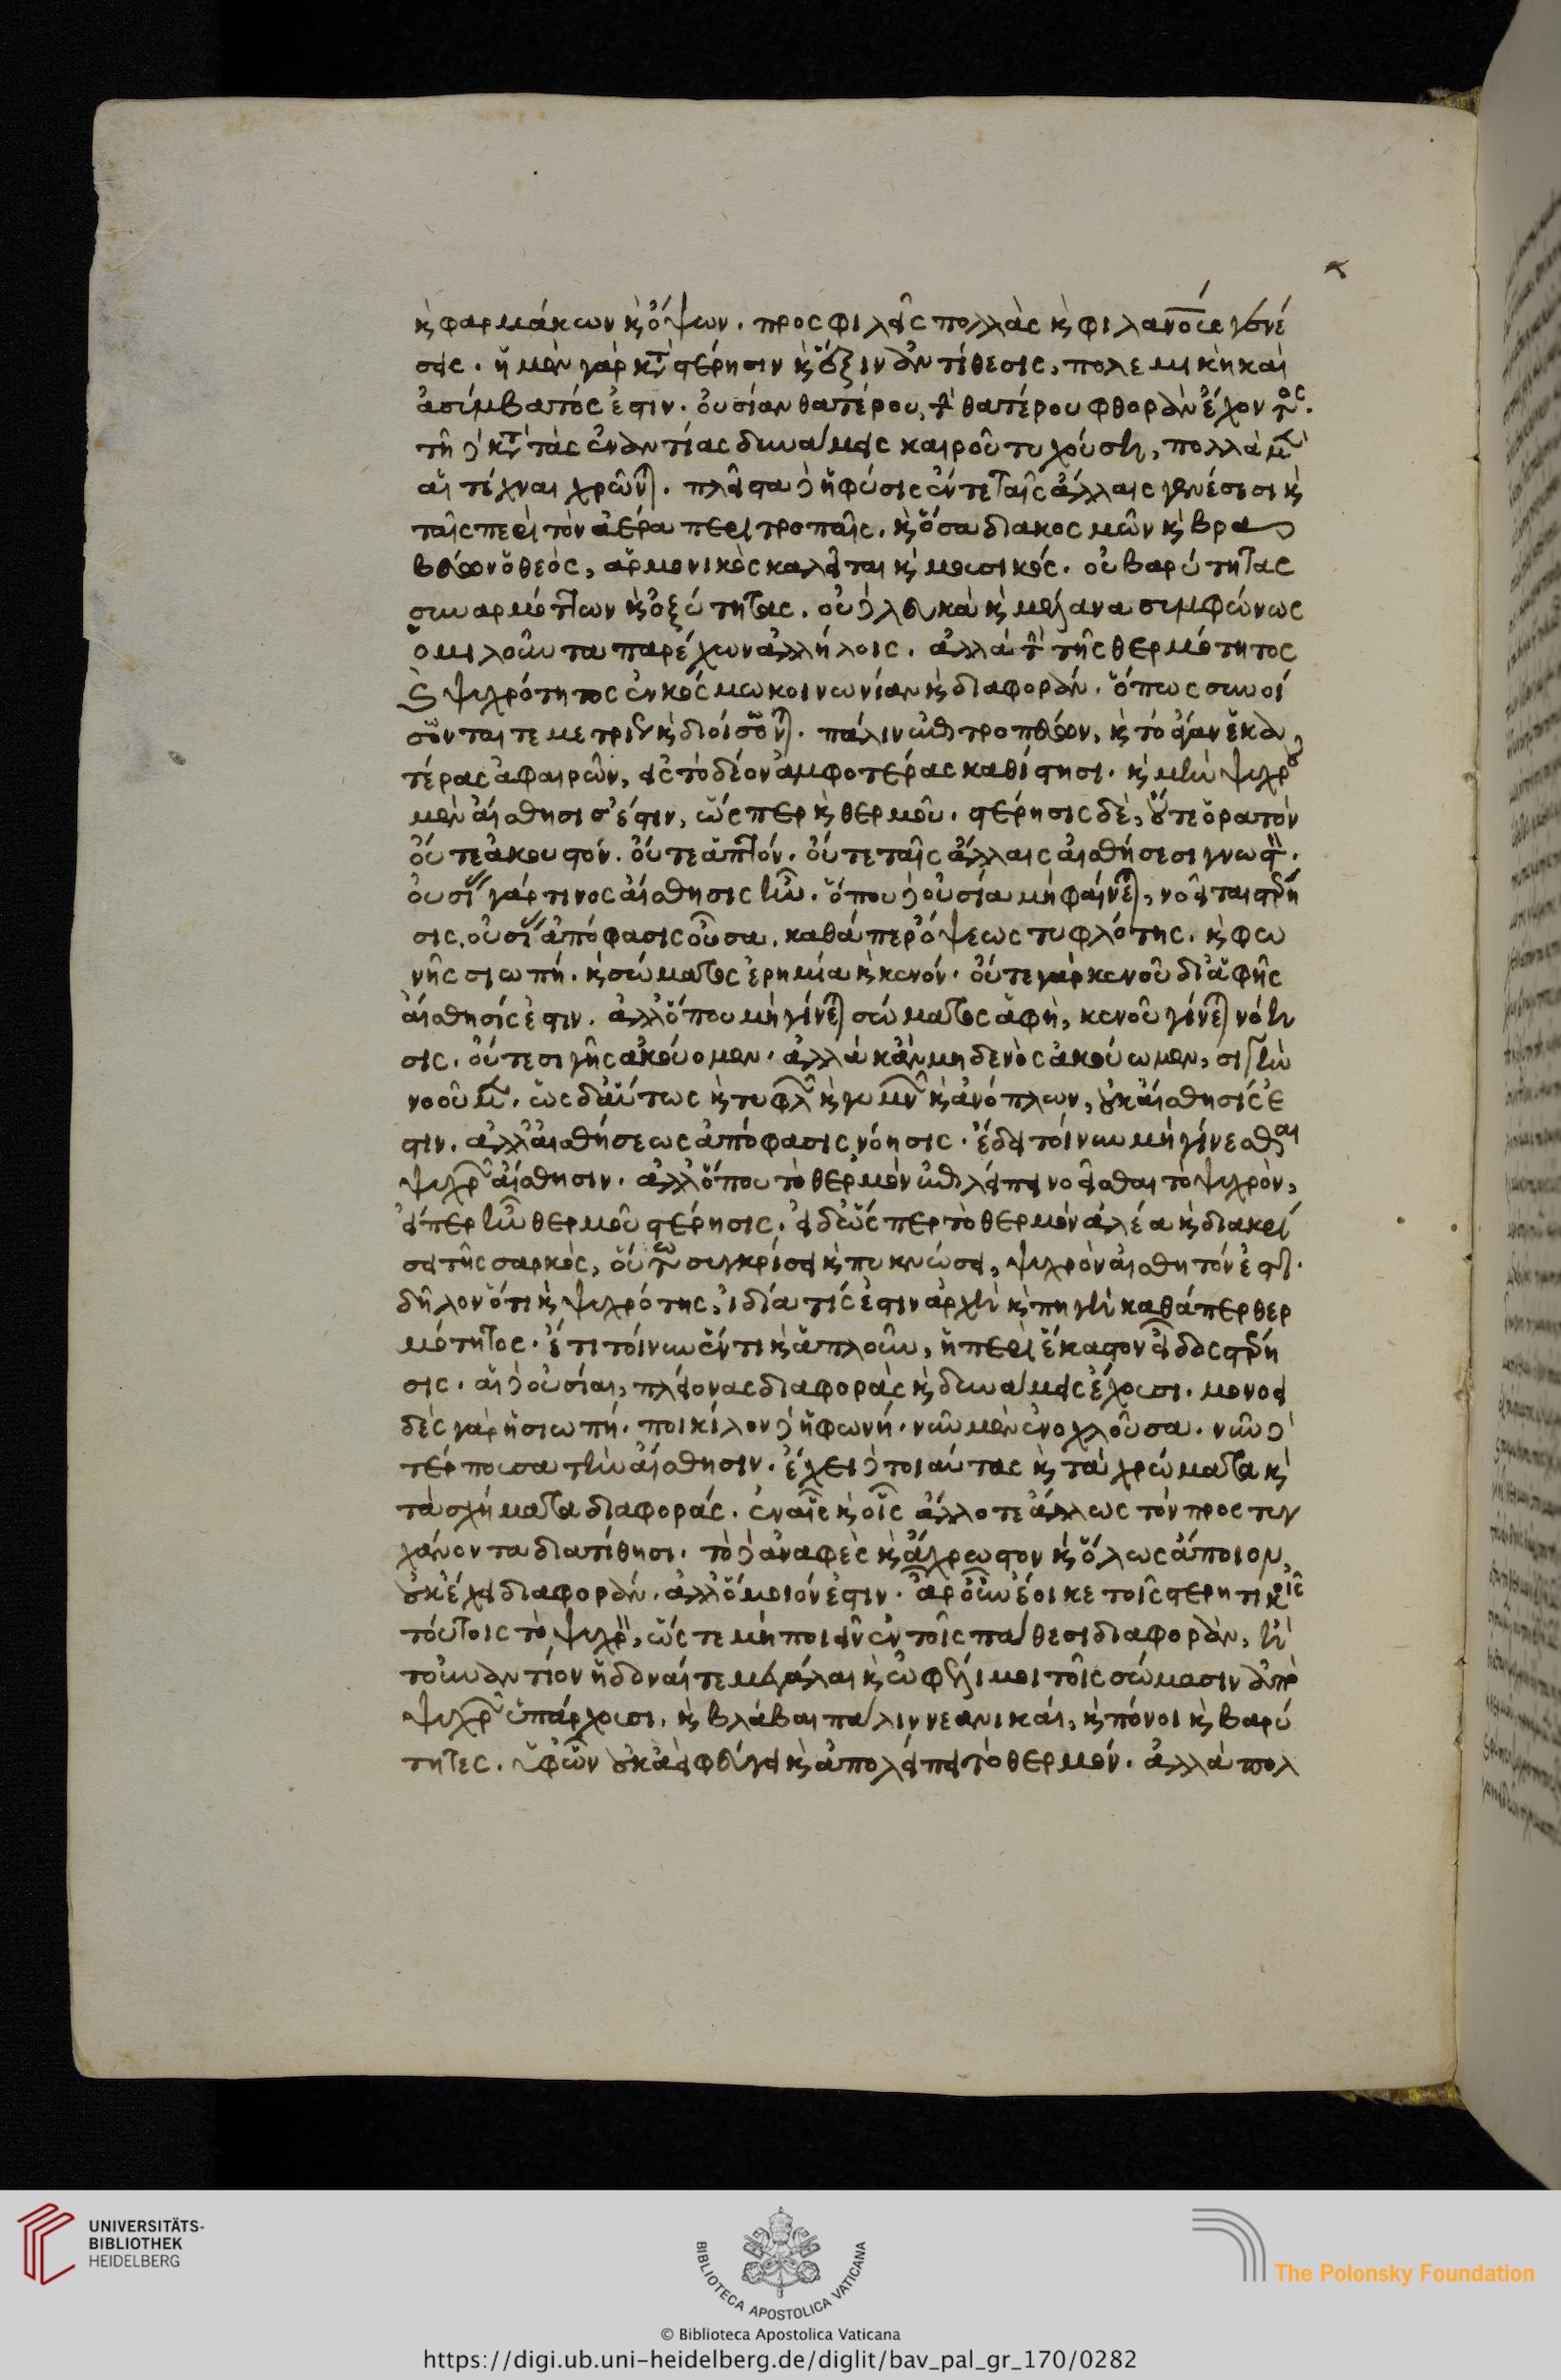 κ φαρμάκων κ ὄψων. προσφιλεῖς πολλὰς κ φιλανο̅ις γενέ
σεις. ἡ μὲν γὰρ κτ̀ στέρησιν κ ἕξιν ἀντίθεσις, πολεμικὴ καὶ
ἀσύμβατός ἐστιν. οὐσίαν θατέρου, τ̀ θατέρου φθορὰν ἔχοντος.
τῆ δ κτ̀ τὰς ἐναντίας δυνάμεις καιροῦ τυχούση, πολλὰ μ̀
αἱ τέχναι χρῶντ. πλεῖστα δ ἡ φύσις ἔν τε ταῖς ἄλλαις γενέσεσι κ
ταῖς περὶ τὸν ἀέρα περιτροπαῖς. κ ὅσα διακοσμῶν κ βρα
βεύων ὁ θεὸς, ἁρμονικὸς καλεῖται κ μουσικός. οὐ βαρύτητας
συναρμόττων κ ὀξύτητας. οὐ δ λευκὰ κ μέλανα συμφώνως
ὁμιλοῦντα παρέχων ἀλλήλοις. ἀλλὰ τ̀ τῆς θερμότητος
κ ψυχρότητος ἐν κόσμω κοινωνίαν κ διαφοράν. ὅπως συνοί
σονταί τε μετρίως κ διοίσοντ. πάλιν ἐπιτροπεύων, κ τὸ ἄγαν ἑκα
τέρας ἀφαιρῶν, εἰς τὸ δέον ἀμφοτέρας καθίστησι. κ μὴν ψυχροῦ
μὲν αἴσθησίς ἐστιν, ὥσπερ κ θερμοῦ. στέρησις δὲ, οὔτε ὁρατὸν
οὔτε ἀκουστόν. οὔτε ἁπτόν. οὔτε ταῖς ἄλλαις αἰσθήσεσι γνωστ.
οὐσί γάρ τινος αἴσθησις ἦν. ὅπου δ οὐσία μὴ φαίνετ, νοεῖται στέρη
σις, οὐσί ἀπόφασις οὖσα. καθάπερ ὄψεως τυφλότης. κ φω
νῆς σιωπή. κ σώματος ἐρημία κ κενόν. οὔτε γὰρ κενοῦ δι ἁφῆς
αἴσθησίς ἐστιν. ἀλλ ὅπου μὴ γίνετ σώματος ἁφὴ, κενοῦ γίνετ νόη
σις. οὔτε σιγῆς ἀκούομεν. ἀλλὰ κἂν μηδενὸς ἀκούωμεν, σιγὴν
νοοῦμ. ὡς δ αὔτως κ τυφλ κ γυμν κ ἀνόπλων, οὐκ αἴσθησίς ἐ
στιν. ἀλλ αἰσθήσεως ἀπόφασις νόησις. ἔδει τοίνυν μὴ γίνεσθαι
ψυχρ αἴσθησιν. ἀλλ ὅπου τὸ θερμὸν ἐπιλείπει νοεῖσθαι τὸ ψυχρὸν,
εἴπερ ἦν θερμοῦ στέρησις. εἰ δ ὥσπερ τὸ θερμὸν ἀλέα κ διακρί
σει τῆς σαρκὸς, οὕτω συγκρίσει κ πυκνώσει, ψυχρὸν αἰσθητόν ἐστι.
δῆλον ὅτι κ ψυχρότης, ἰδία τίς ἐστιν ἀρχὴ κ πηγὴ καθάπερ θερ
μότητος. ἔτι τοίνυν ἕν τι κ ἁπλοῦν, ἡ περὶ ἕκαστον εἶδος στέρη
σις. αἱ δ οὐσίαι, πλείονας διαφορὰς κ δυνάμεις ἔχουσι. μονοει
δὲς γὰρ ἡ σιωπή. ποικίλον δ ἡ φωνή. νῦν μὲν ἐνοχλοῦσα. νῦν δ
τέρπουσα τὴν αἴσθησιν. ἔχει δ τοιαύτας κ τὰ χρώματα κ
τὰ σχήματα διαφοράς. ἐν αἷς κ οἷς ἄλλοτε ἄλλως τὸν προστυγ
χάνοντα διατίθησι. τὸ δ ἀναφὲς κ ἄχρωστον κ ὅλως ἄποιον,
οὐκ ἔχει διαφοράν. ἀλλ ὅμοιόν ἐστιν. ἆρ οὖν ἔοικε τοῖς στερητικοῖς
τούτοις τὸ ψυχρ, ὥστε μὴ ποιεῖν ἐν τοῖς πάθεσι διαφορὰν, ἢ
τοὐναντίον ἡδοναί τε μεγάλαι κ ὠφέλιμοι τοῖς σώμασιν ἀπὸ
ψυχρ ὑπάρχουσι, κ βλάβαι πάλιν νεανικαὶ, κ πόνοι κ βαρύ
τητες. ὑφ ὧν οὐκ ἀεὶ φεύγει κ ἀπολείπει τὸ θερμόν. ἀλλὰ πολ
UNIVERSITÄTS-
BIBLIOTHEK
HEIDELBERG
BIBLIOTECA APOSTOLICA VATICANA
The Polonsky Foundation
© Biblioteca Apostolica Vaticana
https://digi.ub.uni-heidelberg.de/diglit/bav_pal_gr_170/0282